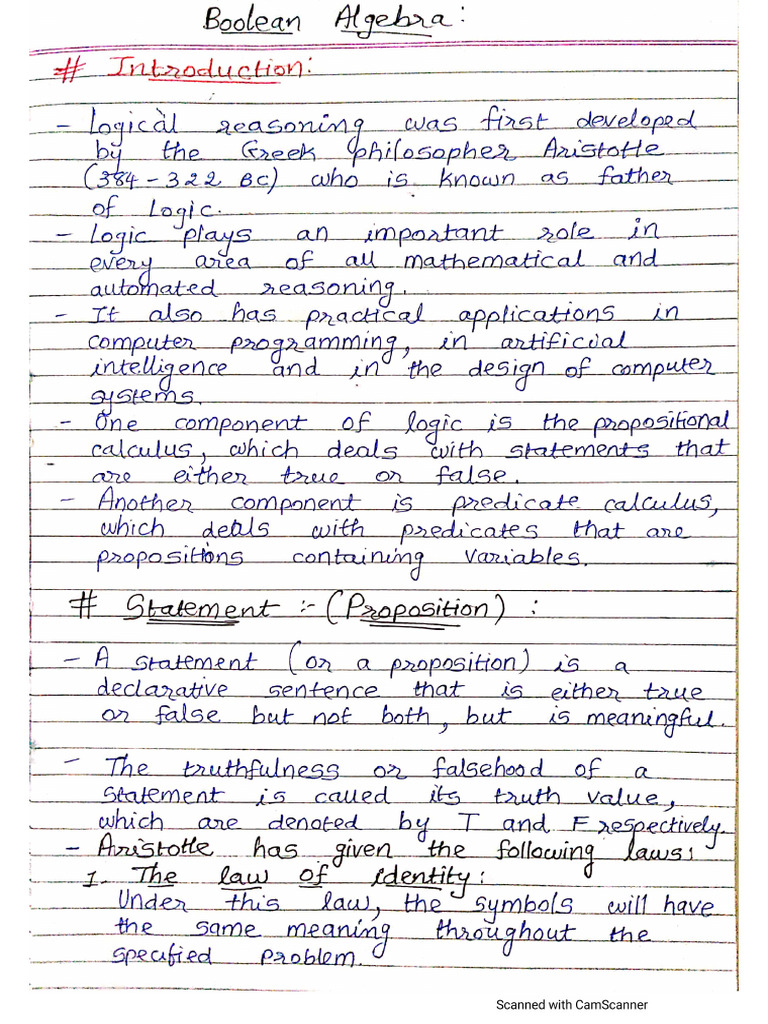 Boolean Algebra:
# Introduction:
- Logical reasoning was first developed
by the Greek philosopher Aristotle
(384-322 BC) who is known as father
of logic.
- Logic plays an important role in
every area of all mathematical and
automated reasoning.
- It also has practical applications in
computer programming, in artificial
intelligence and in the design of computer
systems.
- One component of logic is the propositional
calculus, which deals with statements that
are either true or false.
- Another component is predicate calculus,
which deals with predicates that are
propositions containing variables.
# Statement :- (Proposition) :
- A statement (or a proposition) is a
declarative sentence that is either true
or false but not both, but is meaningful.
- The truthfulness or falsehood of a
statement is called its truth value,
which are denoted by T and F respectively.
- Aristotle has given the following laws:
1. The law of identity:
Under this law, the symbols will have
the same meaning throughout the
specified problem.
Scanned with CamScanner